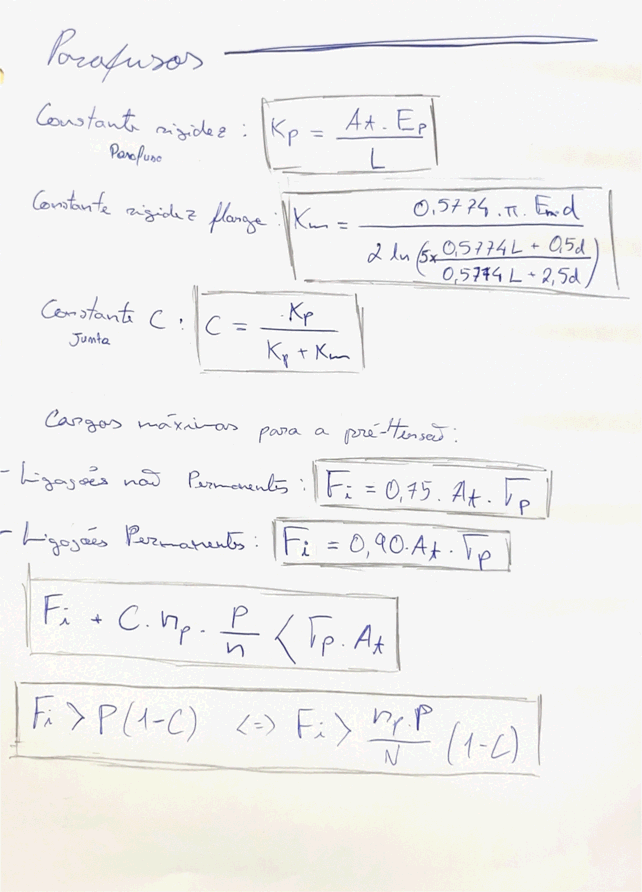 Parafusos
Constante rigidez : Kp = At . Ep / L
Parafuso
Constante rigidez flange : Km = 0,5774 . π . Em d / 2 ln (5x 0,5774 L + 0,5d / 0,5774 L + 2,5d)
Constante C : C = Kp / Kp + Km
Junta
Cargas máximas para a pré-tensão :
- Ligações não Permanentes : Fi = 0,75 . At . σp
- Ligações Permanentes : Fi = 0,90 . At . σp
Fi + C . np . P/n < σp . At
Fi > P (1-C) <=> Fi > np . P / N (1-C)